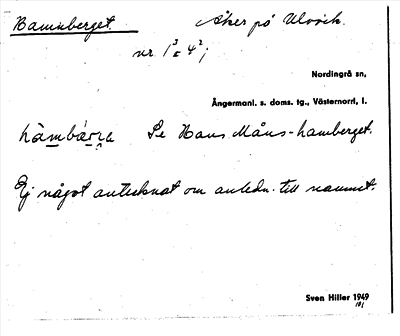 Hamnberget. Åker på Ulvön.
nr. 1³ = 4²;
Nordingrå sn,
Ångermanl. s. doms. tg., Västernorrl, l.
hàmbárrɐ Se Hans Måns-hamberget.
Ej något antecknat om anledn. till namnet.
Sven Hiller 1949